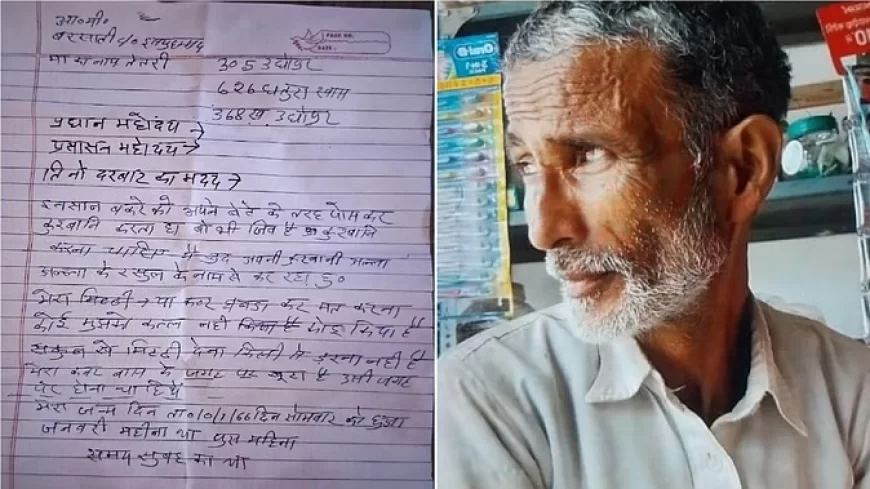 PAGE NO.
DATE:
मा का नाम तेतरी 305 उद्योपुर
626 धतुरा खाम
368 ख उद्योपुर
प्रधान महोदय →
प्रसासन महोदय →
तिनो दरबार का मदद →
इनसान बकरे को अपने बेटे के तरह पोस कर
कुरबानि करता है। वो भी जिव है कुरबानि
करना चाहिए मै खुद अपनी कुरबानी अल्ला
अल्ला के रसुल के नाम से कर रहा हु०
मेरा मिट्टी → या कबर घबड़ा कर मत करना
कोई मुझको कत्ल नही किया है
सकुन से मिट्टी देना किसी से डरना नही है
मेरा कबर बास के जगह पर खुटा है उसी जगह
पर होना चाहिये
मेरा जन्म दिन ता० 10/1/66 दिन सोमवार को हुआ
जनवरी महीना था पुस महिना
समय सुबह का था
Oral-B